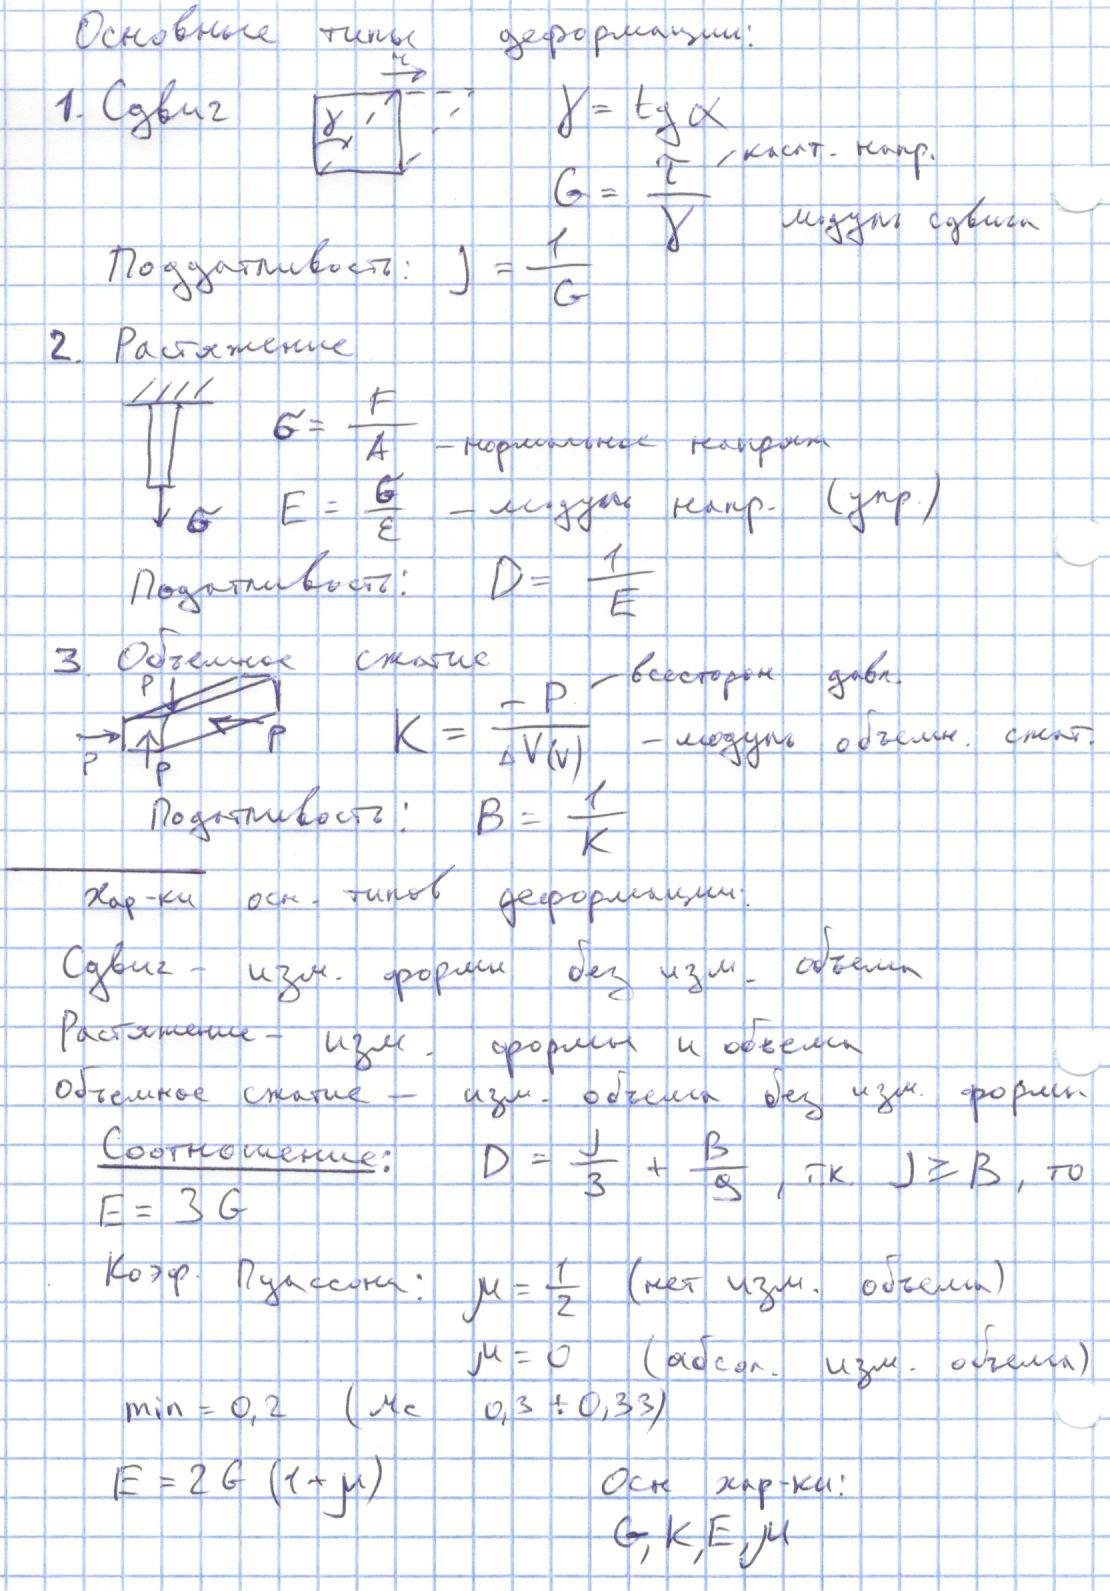 Основные типы деформации:
1. Сдвиг γ = tg α
τ
γ
G = τ/γ касат. напр.
модуль сдвига
Поддатливость: J = 1/G
2. Растяжение
σ = F/A - нормальное напряж
σ E = σ/ε - модуль напр. (упр.)
Податливость: D = 1/E
3. Объемное сжатие
P P P P
K = -P/ΔV(V) всесторон давл. - модуль объемн. сжат.
Податливость: B = 1/K
Хар-ки осн. типов деформации:
Сдвиг - изм. формы без изм. объема
Растяжение - изм. формы и объема
Объемное сжатие - изм. объема без изм. формы
Соотношение: D = J/3 + B/9, т.к. J ≥ B, то
E = 3G
Коэф. Пуассона: μ = 1/2 (нет изм. объема)
μ = 0 (абсол. изм. объема)
min = 0,2 (Ме 0,3 ÷ 0,33)
E = 2G (1+μ) Осн хар-ки:
G, K, E, μ